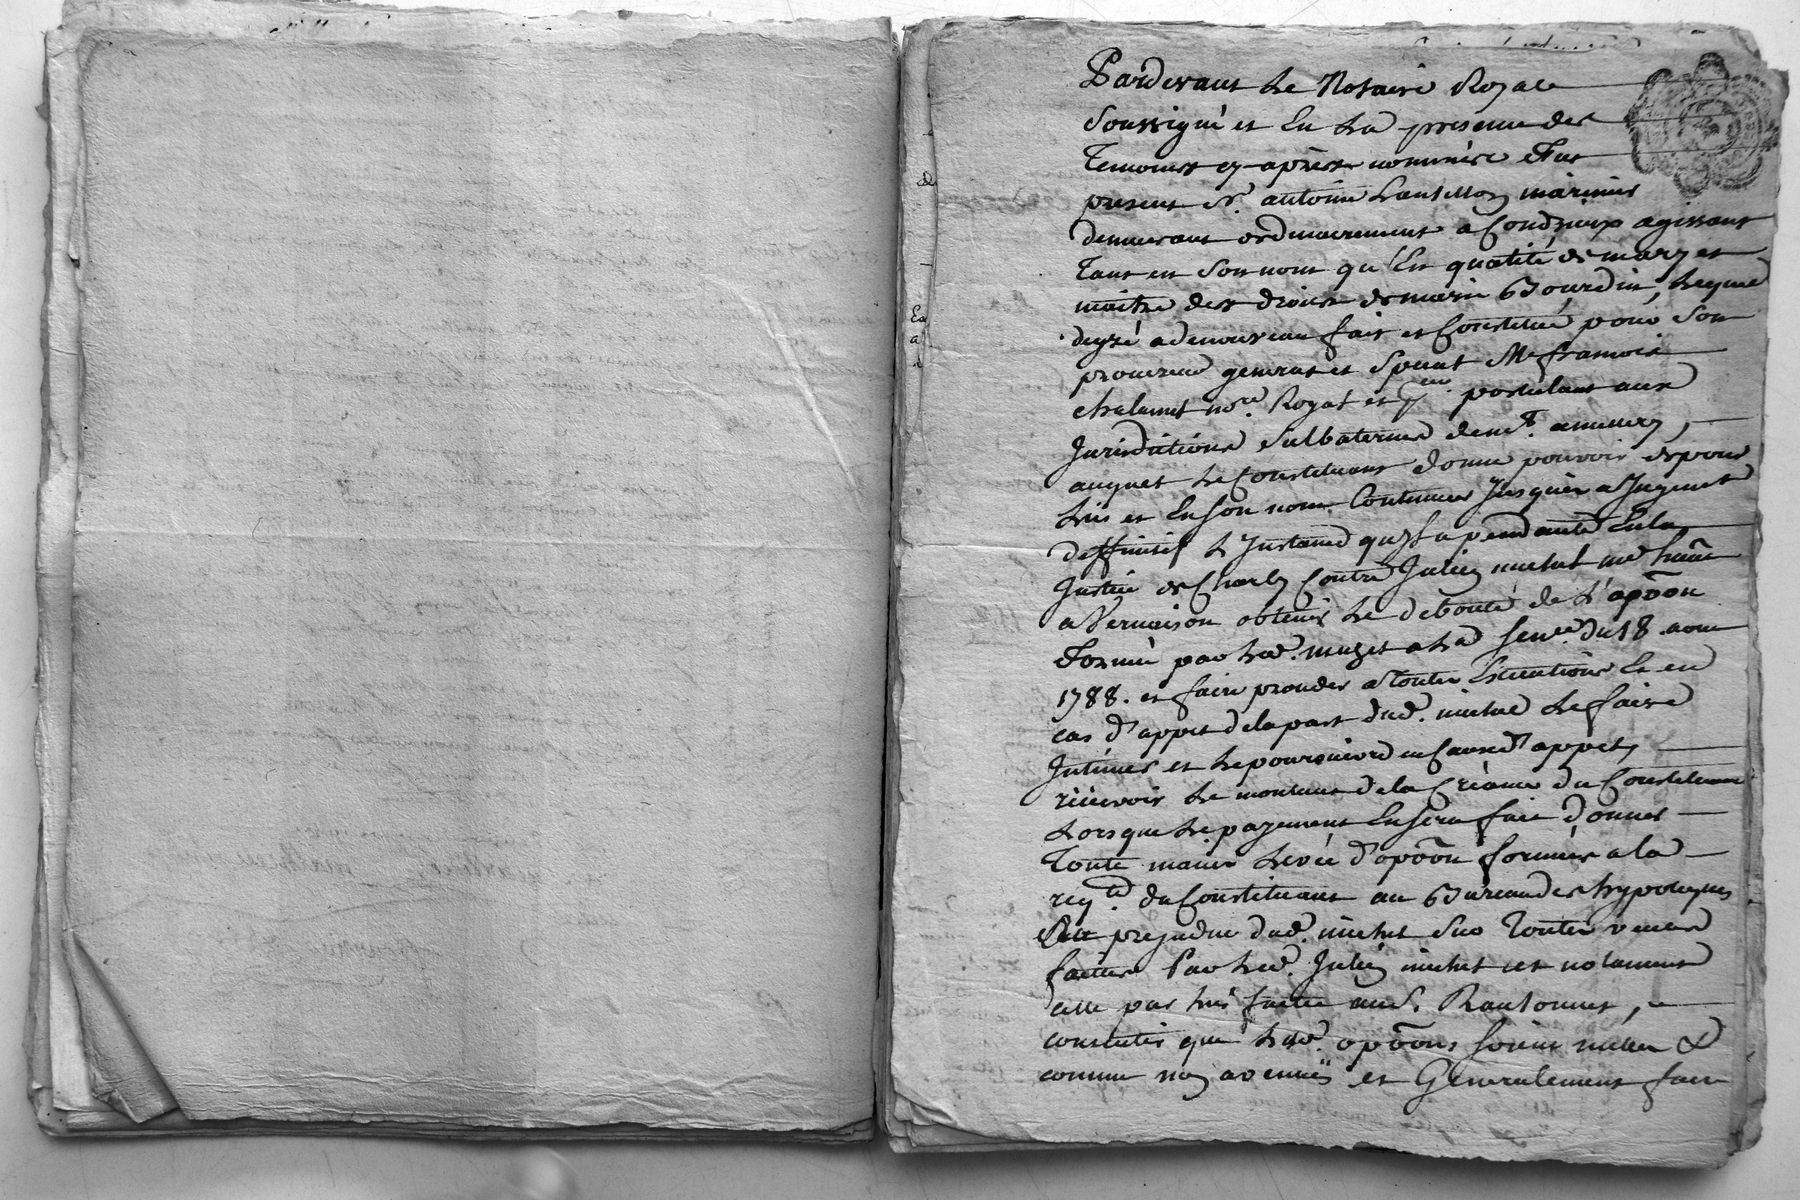 Pardevant Le Notaire Royale
Soussigné et En La presence des
Temoins cy après nommés Fut
present Sr. antoine Lantillon marinier
demeurant ordinairement a Condrieux agissant
Tant en Son nom qu'En qualité de mary et
maitre des droits de marie Bourdin, Lequel
degré a denouveau fait et Constitué pour Son
procureur general et Special Me françois
chalamet nore. Royal et pcur. postulant aux
Juridictions Subalternes de
auquel Le Constituant donne pouvoir de pour
Luy et En Son nom Continuer Jusques a Jugement
deffinitif L'Instance qu'Il a pendante En la
Justice de Charly Contre Julien michel md
a Vernaison obtenir Le debouté de L'opõon
Formée par Led. michel a La Sence. du 18 aout
1788. et faire proceder a Toutes Executions Et en
cas d'appel de la part dud. michel Le faire
Intimer et Le poursuivre en Cause d'appel,
recevoir Le montant de la Créance du Constituant
Lorsque Le payement En Sera fait donner
Toute main Levée d'opõon formée a la
reqte. du Constituant au Bureau des hypoteques
au prejudice dud. michel Sur Toutes ventes
faittes Par Led. Julien michel et notament
celle par Luy faitte au Sr. Rantonnet,
consentir que Lesd. opõons Soient nulles &
comme non avenuës et Generalement faire